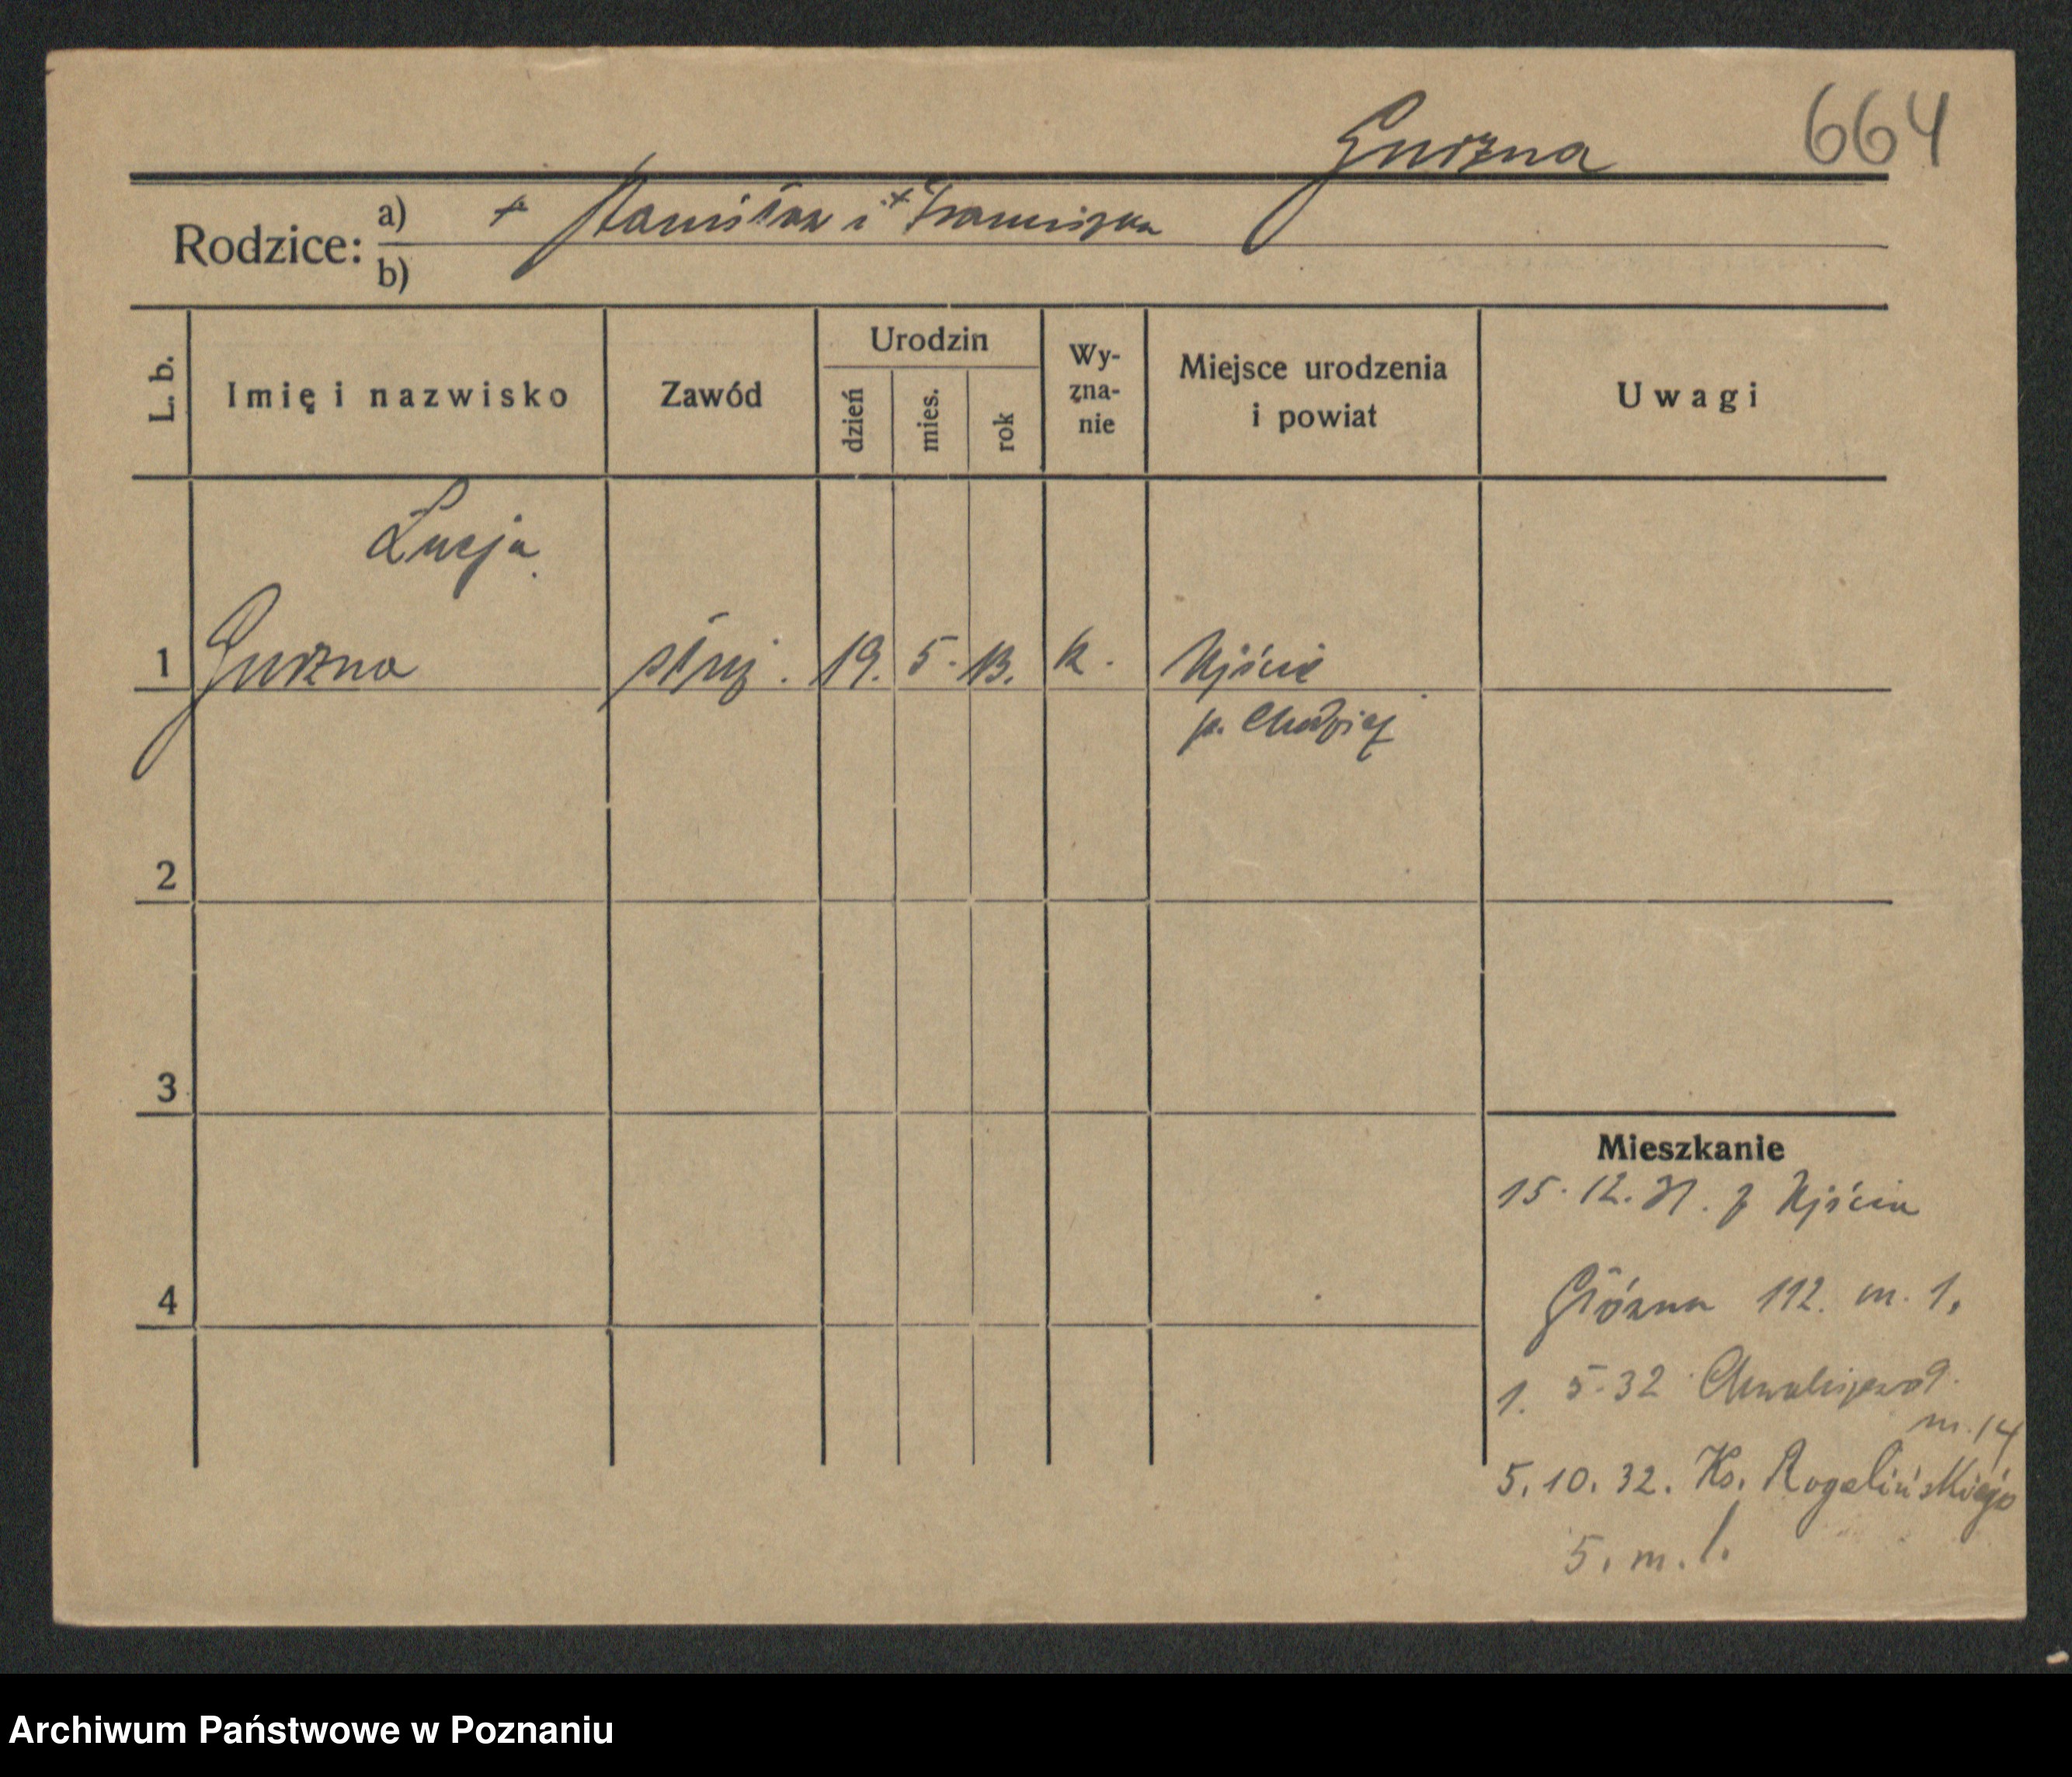 664
Gnizna
Rodzice: a) + Stanisław i + Franciszka
b)
L. b. Imię i nazwisko Zawód Urodzin dzień mies. rok Wy-zna-nie Miejsce urodzenia i powiat Uwagi
Łucja
1 Gnizna służ. 19. 5. 13. k. Ujście
p. Chodzież
2
3
Mieszkanie
15. 12. 31. z Ujścia
4 Główna 112. m. 1.
1. 5. 32 Chwaliszewo 9.
m. 14
5. 10. 32. Ks. Rogalińskiego
5. m. 1.
Archiwum Państwowe w Poznaniu